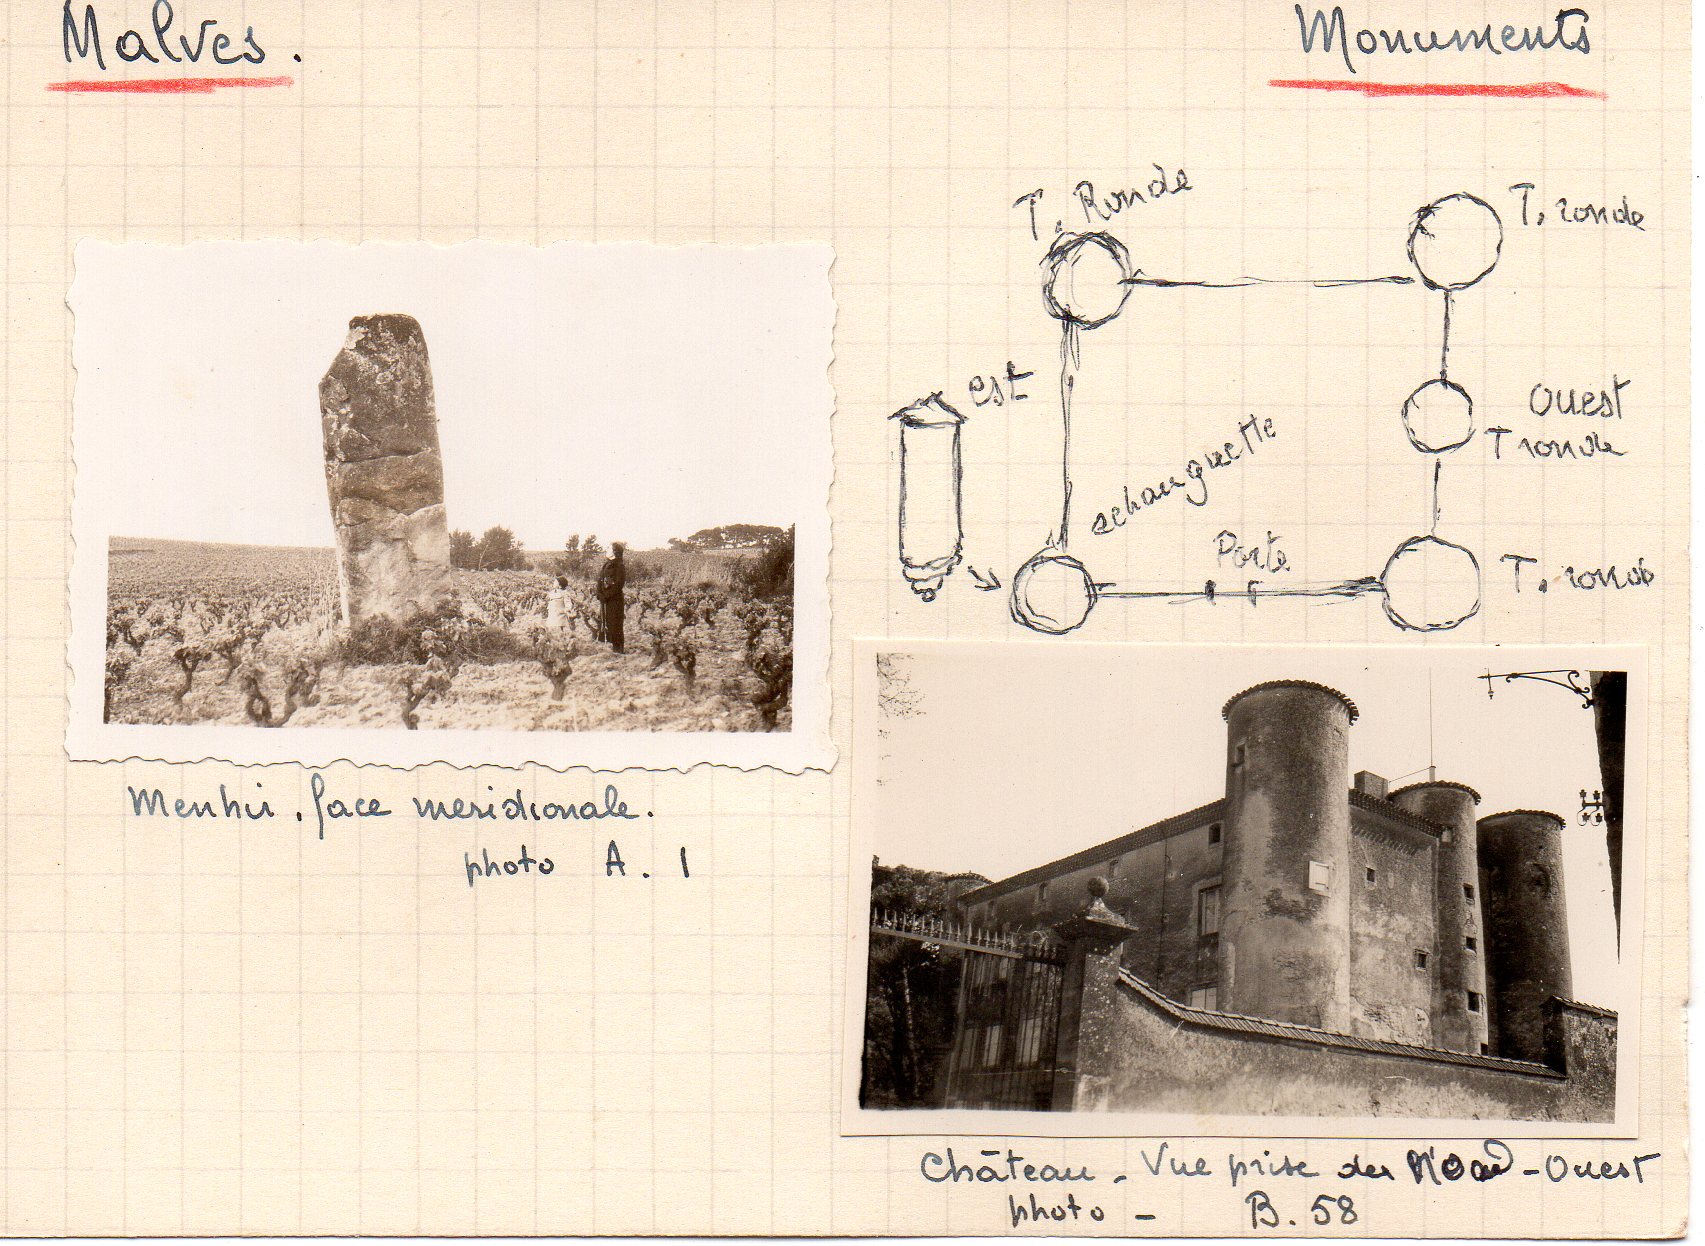 Malves.
Monuments
T. Ronde
T. ronde
est
Ouest
T ronde
echauguette
Porte
T. ronde
Menhir. face meridionale.
photo A. 1
Château - Vue prise du Nord-Ouest
photo - B. 58